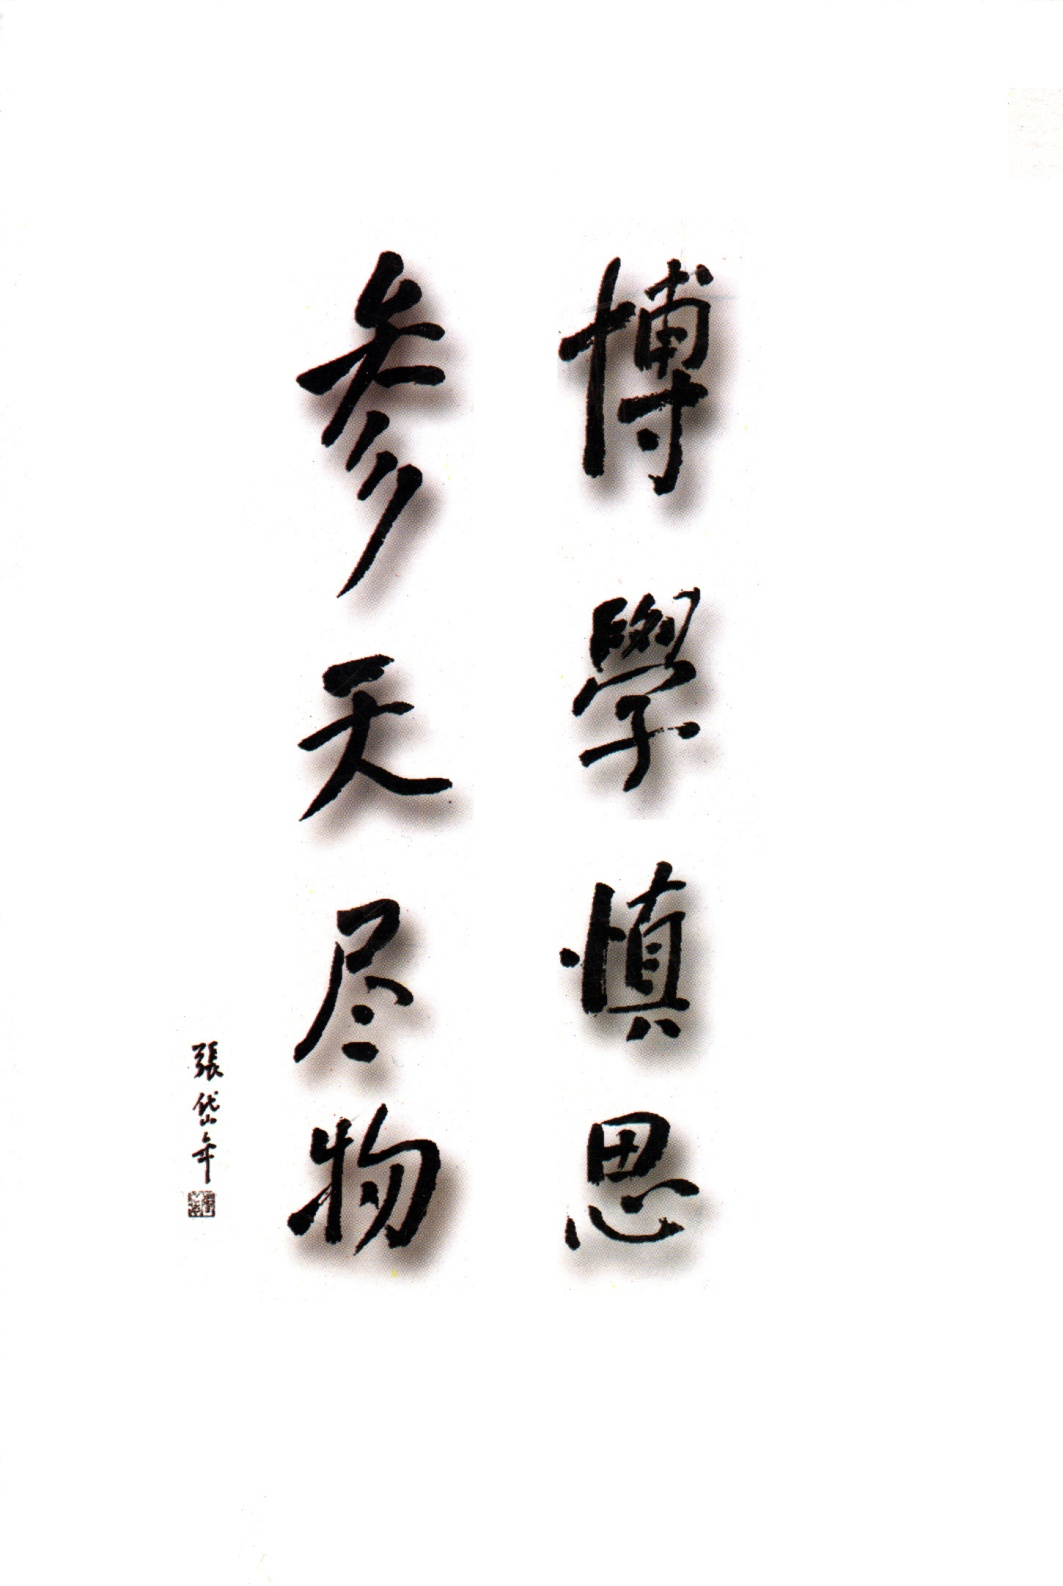 博學慎思
参天尽物
張岱年